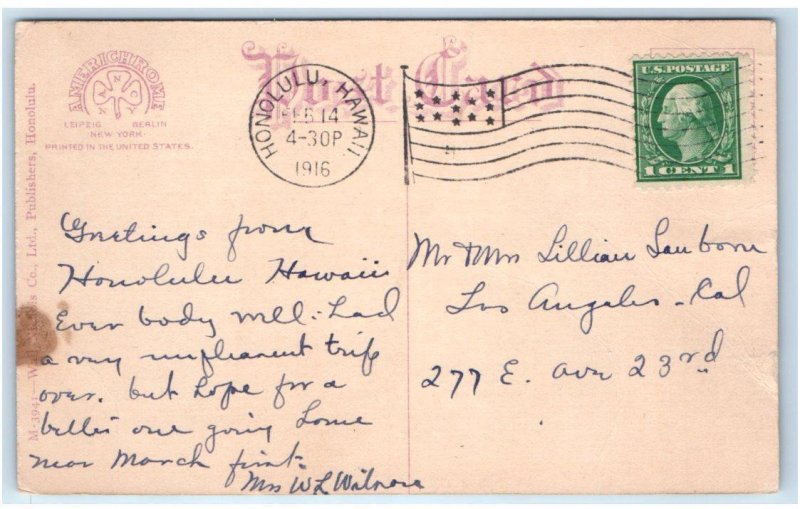 Post Card
AMERICHROME
LEIPZIG BERLIN
NEW YORK
PRINTED IN THE UNITED STATES.
HONOLULU, HAWAII
FEB 14
4-30P
1916
U.S. POSTAGE
1 CENT 1
M-3941— Co., Ltd., Publishers, Honolulu.
Greetings from
Honolulu Hawaii
Ever body well. Had
a very unpleasant trip
over. but hope for a
better one going home
near March first.
Mrs W L
Mr & Mrs Lillian Sanborn
Los Angeles - Cal
277 E. Ave 23rd